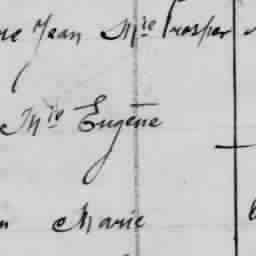 Jean Mie Prosper
Mie Eugène
Marie